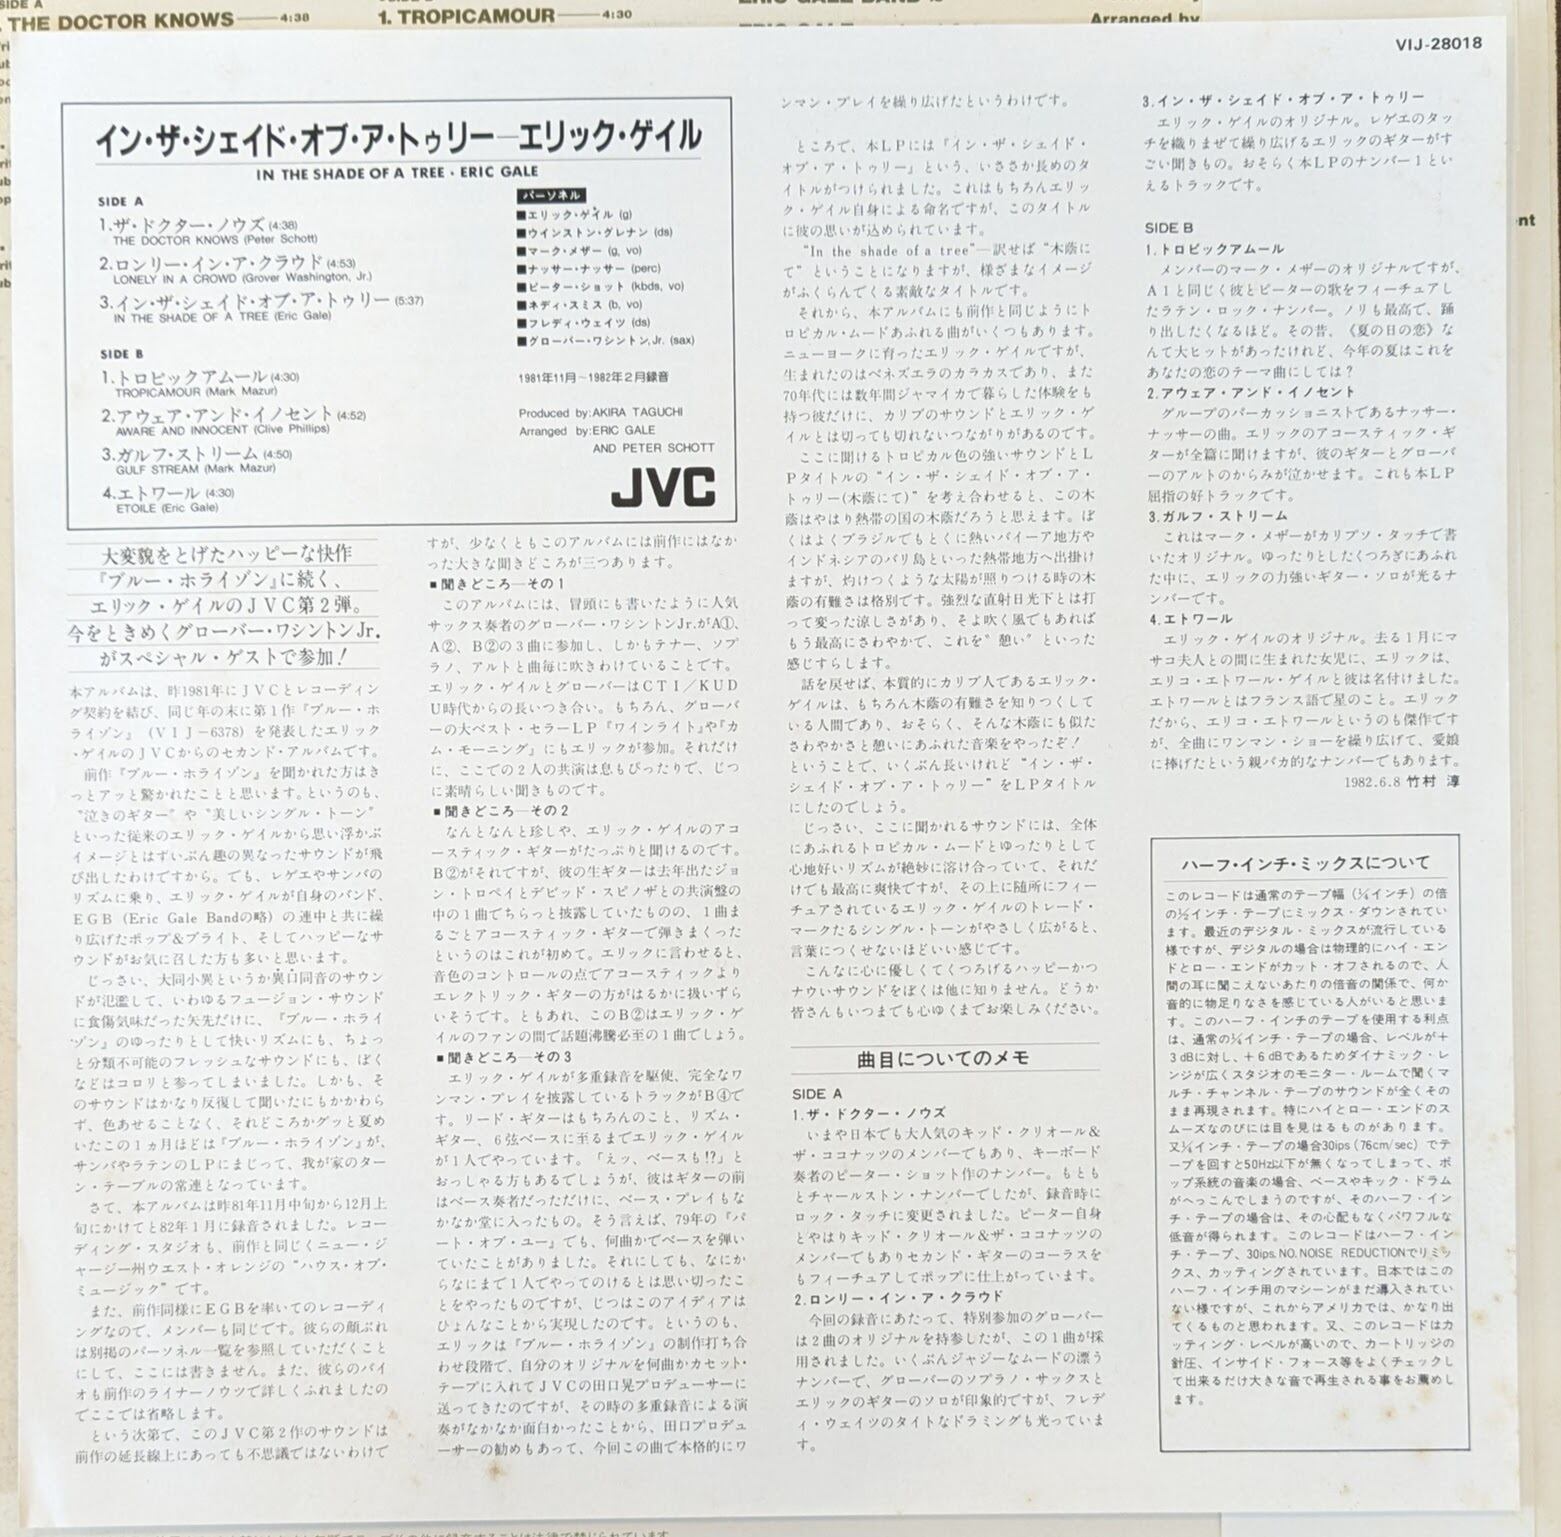 SIDE A
THE DOCTOR KNOWS 4:38
1. TROPICAMOUR 4:30
Arranged by
VIJ-28018
イン・ザ・シェイド・オブ・ア・トゥリー—エリック・ゲイル
IN THE SHADE OF A TREE・ERIC GALE
SIDE A
1.ザ・ドクター・ノウズ(4:38)
THE DOCTOR KNOWS (Peter Schott)
2.ロンリー・イン・ア・クラウド(4:53)
LONELY IN A CROWD (Grover Washington, Jr.)
3.イン・ザ・シェイド・オブ・ア・トゥリー(5:37)
IN THE SHADE OF A TREE (Eric Gale)
SIDE B
1.トロピックアムール(4:30)
TROPICAMOUR (Mark Mazur)
2.アウェア・アンド・イノセント(4:52)
AWARE AND INNOCENT (Clive Phillips)
3.ガルフ・ストリーム(4:50)
GULF STREAM (Mark Mazur)
4.エトワール(4:30)
ETOILE (Eric Gale)
パーソネル
■エリック・ゲイル (g)
■ウインストン・グレナン (ds)
■マーク・メザー (g, vo)
■ナッサー・ナッサー (perc)
■ピーター・ショット (kbds, vo)
■ネディ・スミス (b, vo)
■フレディ・ウェイツ (ds)
■グローバー・ワシントン,Jr. (sax)
1981年11月〜1982年2月録音
Produced by:AKIRA TAGUCHI
Arranged by:ERIC GALE
AND PETER SCHOTT
JVC
大変貌をとげたハッピーな快作
『ブルー・ホライゾン』に続く、
エリック・ゲイルのJVC第2弾。
今をときめくグローバー・ワシントンJr.
がスペシャル・ゲストで参加!
本アルバムは、昨1981年にJVCとレコーディン
グ契約を結び、同じ年の末に第1作『ブルー・ホ
ライゾン』(VIJ-6378)を発表したエリック
・ゲイルのJVCからのセカンド・アルバムです。
前作『ブルー・ホライゾン』を聞かれた方はき
っとアッと驚かれたことと思います。というのも、
"泣きのギター"や"美しいシングル・トーン"
といった従来のエリック・ゲイルから思い浮かぶ
イメージとはずいぶん趣の異なったサウンドが飛
び出したわけですから。でも、レゲエやサンバの
リズムに乗り、エリック・ゲイルが自身のバンド、
EGB(Eric Gale Bandの略)の連中と共に繰
り広げたポップ&ブライト、そしてハッピーなサ
ウンドがお気に召した方も多いと思います。
じっさい、大同小異というか異口同音のサウン
ドが氾濫して、いわゆるフュージョン・サウンド
に食傷気味だった矢先だけに、『ブルー・ホライ
ゾン』のゆったりとして快いリズムにも、ちょっ
と分類不可能のフレッシュなサウンドにも、ぼく
などはコロリと参ってしまいました。しかも、そ
のサウンドはかなり反復して聞いたにもかかわら
ず、色あせることなく、それどころかグッと夏め
いたこの1ヵ月ほどは『ブルー・ホライゾン』が、
サンバやラテンのLPにまじって、我が家のター
ン・テーブルの常連となっています。
さて、本アルバムは昨81年11月中旬から12月上
旬にかけてと82年1月に録音されました。レコー
ディング・スタジオも、前作と同じくニュー・ジ
ャージー州ウエスト・オレンジの"ハウス・オブ・
ミュージック"です。
また、前作同様にEGBを率いてのレコーディ
ングなので、メンバーも同じです。彼らの顔ぶれ
は別掲のパーソネル一覧を参照していただくこと
にして、ここには書きません。また、彼らのバイ
オも前作のライナーノウツで詳しくふれましたの
でここでは省略します。
という次第で、このJVC第2作のサウンドは
前作の延長線上にあっても不思議ではないわけで
すが、少なくともこのアルバムには前作にはなか
った大きな聞きどころが三つあります。
■聞きどころ—その1
このアルバムには、冒頭にも書いたように人気
サックス奏者のグローバー・ワシントンJr.がA①、
A②、B②の3曲に参加し、しかもテナー、ソプ
ラノ、アルトと曲毎に吹きわけていることです。
エリック・ゲイルとグローバーはCTI/KUD
U時代からの長いつき合い。もちろん、グローバ
ーの大ベスト・セラーLP『ワインライト』や『カ
ム・モーニング』にもエリックが参加。それだけ
に、ここでの2人の共演は息もぴったりで、じつ
に素晴らしい聞きものです。
■聞きどころ—その2
なんとなんと珍しや、エリック・ゲイルのアコ
ースティック・ギターがたっぷりと聞けるのです。
B②がそれですが、彼の生ギターは去年出たジョ
ン・トロペイとデビッド・スピノザとの共演盤の
中の1曲でちらっと披露していたものの、1曲ま
るごとアコースティック・ギターで弾きまくった
というのはこれが初めて。エリックに言わせると、
音色のコントロールの点でアコースティックより
エレクトリック・ギターの方がはるかに扱いずら
いそうです。ともあれ、このB②はエリック・ゲ
イルのファンの間で話題沸騰必至の1曲でしょう。
■聞きどころ—その3
エリック・ゲイルが多重録音を駆使、完全なワ
ンマン・プレイを披露しているトラックがB④で
す。リード・ギターはもちろんのこと、リズム・
ギター、6弦ベースに至るまでエリック・ゲイル
が1人でやっています。「えッ、ベースも!?」と
おっしゃる方もあるでしょうが、彼はギターの前
はベース奏者だっただけに、ベース・プレイもな
かなか堂に入ったもの。そう言えば、79年の『パ
ート・オブ・ユー』でも、何曲かでベースを弾い
ていたことがありました。それにしても、なにか
らなにまで1人でやってのけるとは思い切ったこ
とをやったものですが、じつはこのアイディアは
ひょんなことから実現したのです。というのも、
エリックは『ブルー・ホライゾン』の制作打ち合
わせ段階で、自分のオリジナルを何曲かカセット・
テープに入れてJVCの田口晃プロデューサーに
送ってきたのですが、その時の多重録音による演
奏がなかなか面白かったことから、田口プロデュ
ーサーの勧めもあって、今回この曲で本格的にワ
ンマン・プレイを繰り広げたというわけです。
ところで、本LPには『イン・ザ・シェイド・
オブ・ア・トゥリー』という、いささか長めのタ
イトルがつけられました。これはもちろんエリッ
ク・ゲイル自身による命名ですが、このタイトル
に彼の思いが込められています。
"In the shade of a tree"—訳せば"木蔭に
て"ということになりますが、様ざまなイメージ
がふくらんでくる素敵なタイトルです。
それから、本アルバムにも前作と同じようにト
ロピカル・ムードあふれる曲がいくつもあります。
ニューヨークに育ったエリック・ゲイルですが、
生まれたのはベネズエラのカラカスであり、また
70年代には数年間ジャマイカで暮らした体験をも
持つ彼だけに、カリブのサウンドとエリック・ゲ
イルとは切っても切れないつながりがあるのです。
ここに聞けるトロピカル色の強いサウンドとL
Pタイトルの"イン・ザ・シェイド・オブ・ア・
トゥリー(木蔭にて)"を考え合わせると、この木
蔭はやはり熱帯の国の木蔭だろうと思えます。ぼ
くはよくブラジルでもとくに熱いバイーア地方や
インドネシアのバリ島といった熱帯地方へ出掛け
ますが、灼けつくような太陽が照りつける時の木
蔭の有難さは格別です。強烈な直射日光下とは打
って変った涼しさがあり、そよ吹く風でもあれば
もう最高にさわやかで、これを"憩い"といった
感じすらします。
話を戻せば、本質的にカリブ人であるエリック・
ゲイルは、もちろん木蔭の有難さを知りつくして
いる人間であり、おそらく、そんな木蔭にも似た
さわやかさと憩いにあふれた音楽をやったぞ!
ということで、いくぶん長いけれど"イン・ザ・
シェイド・オブ・ア・トゥリー"をLPタイトル
にしたのでしょう。
じっさい、ここに聞かれるサウンドには、全体
にあふれるトロピカル・ムードとゆったりとして
心地好いリズムが絶妙に溶け合っていて、それだ
けでも最高に爽快ですが、その上に随所にフィー
チュアされているエリック・ゲイルのトレード・
マークたるシングル・トーンがやさしく広がると、
言葉につくせないほどいい感じです。
こんなに心に優しくてくつろげるハッピーかつ
ナウいサウンドをぼくは他に知りません。どうか
皆さんもいつまでも心ゆくまでお楽しみください。
曲目についてのメモ
SIDE A
1.ザ・ドクター・ノウズ
いまや日本でも大人気のキッド・クリオール&
ザ・ココナッツのメンバーでもあり、キーボード
奏者のピーター・ショット作のナンバー。もとも
とチャールストン・ナンバーでしたが、録音時に
ロック・タッチに変更されました。ピーター自身
とやはりキッド・クリオール&ザ・ココナッツの
メンバーでもありセカンド・ギターのコーラスを
もフィーチュアしてポップに仕上がっています。
2.ロンリー・イン・ア・クラウド
今回の録音にあたって、特別参加のグローバー
は2曲のオリジナルを持参したが、この1曲が採
用されました。いくぶんジャジーなムードの漂う
ナンバーで、グローバーのソプラノ・サックスと
エリックのギターのソロが印象的ですが、フレデ
ィ・ウェイツのタイトなドラミングも光っていま
す。
3.イン・ザ・シェイド・オブ・ア・トゥリー
エリック・ゲイルのオリジナル。レゲエのタッ
チを織りまぜて繰り広げるエリックのギターがす
ごい聞きもの。おそらく本LPのナンバー1とい
えるトラックです。
SIDE B
1.トロピックアムール
メンバーのマーク・メザーのオリジナルですが、
A1と同じく彼とピーターの歌をフィーチュアし
たラテン・ロック・ナンバー。ノリも最高で、踊
り出したくなるほど。その昔、《夏の日の恋》な
んて大ヒットがあったけれど、今年の夏はこれを
あなたの恋のテーマ曲にしては?
2.アウェア・アンド・イノセント
グループのパーカッショニストであるナッサー・
ナッサーの曲。エリックのアコースティック・ギ
ターが全篇に聞けますが、彼のギターとグローバ
ーのアルトのからみが泣かせます。これも本LP
屈指の好トラックです。
3.ガルフ・ストリーム
これはマーク・メザーがカリプソ・タッチで書
いたオリジナル。ゆったりとしたくつろぎにあふれ
た中に、エリックの力強いギター・ソロが光るナ
ンバーです。
4.エトワール
エリック・ゲイルのオリジナル。去る1月にマ
サコ夫人との間に生まれた女児に、エリックは、
エリコ・エトワール・ゲイルと彼は名付けました。
エトワールとはフランス語で星のこと。エリック
だから、エリコ・エトワールというのも傑作です
が、全曲にワンマン・ショーを繰り広げて、愛娘
に捧げたという親バカ的なナンバーでもあります。
1982.6.8 竹村 淳
ハーフ・インチ・ミックスについて
このレコードは通常のテープ幅(¼インチ)の倍
の½インチ・テープにミックス・ダウンされてい
ます。最近のデジタル・ミックスが流行している
様ですが、デジタルの場合は物理的にハイ・エン
ドとロー・エンドがカット・オフされるので、人
間の耳に聞こえないあたりの倍音の関係で、何か
音的に物足りなさを感じている人がいると思いま
す。このハーフ・インチのテープを使用する利点
は、通常の¼インチ・テープの場合、レベルが+
3dBに対し、+6dBであるためダイナミック・レ
ンジが広くスタジオのモニター・ルームで聞くマ
ルチ・チャンネル・テープのサウンドが全くその
まま再現されます。特にハイとロー・エンドのス
ムーズなのびには目を見はるものがあります。
又¼インチ・テープの場合30ips(76cm/sec)でテ
ープを回すと50Hz以下が無くなってしまって、ポ
ップ系統の音楽の場合、ベースやキック・ドラム
がへっこんでしまうのですが、そのハーフ・イン
チ・テープの場合は、その心配もなくパワフルな
低音が得られます。このレコードはハーフ・イン
チ・テープ、30ips. NO. NOISE REDUCTIONでリミッ
クス、カッティングされています。日本ではこの
ハーフ・インチ用のマシーンがまだ導入されてい
ない様ですが、これからアメリカでは、かなり出
てくるものと思われます。又、このレコードはカ
ッティング・レベルが高いので、カートリッジの
針圧、インサイド・フォース等をよくチェックし
て出来るだけ大きな音で再生される事をお薦めし
ます。